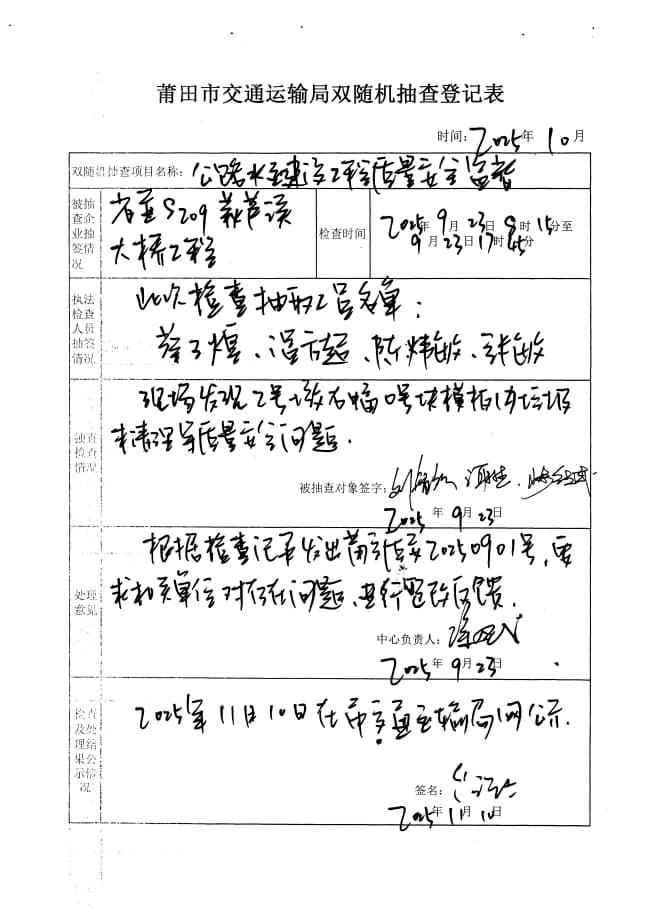 莆田市交通运输局双随机抽查登记表
时间：2025年10月
双随机抽查项目名称：公路水运建设工程质量安全监督
被抽查企业抽签情况
省道S209萩芦溪
大桥工程
检查时间
2025年9月23日8时15分至
9月23日17时45分
执法检查人员抽签情况
此次检查抽取人员名单：
抽查检查情况
现场发现2号墩右幅0号块模板
质量安全问题.
被抽查对象签字：
2025年9月23日
处理意见
根据检查记录发出莆交质安20250901号，要
求相关单位对存在问题、进行整改反馈.
中心负责人：
2025年9月23日
检查及处理结果公示情况
2025年11月10日在市交通运输局网公示.
签名：
2025年11月10日